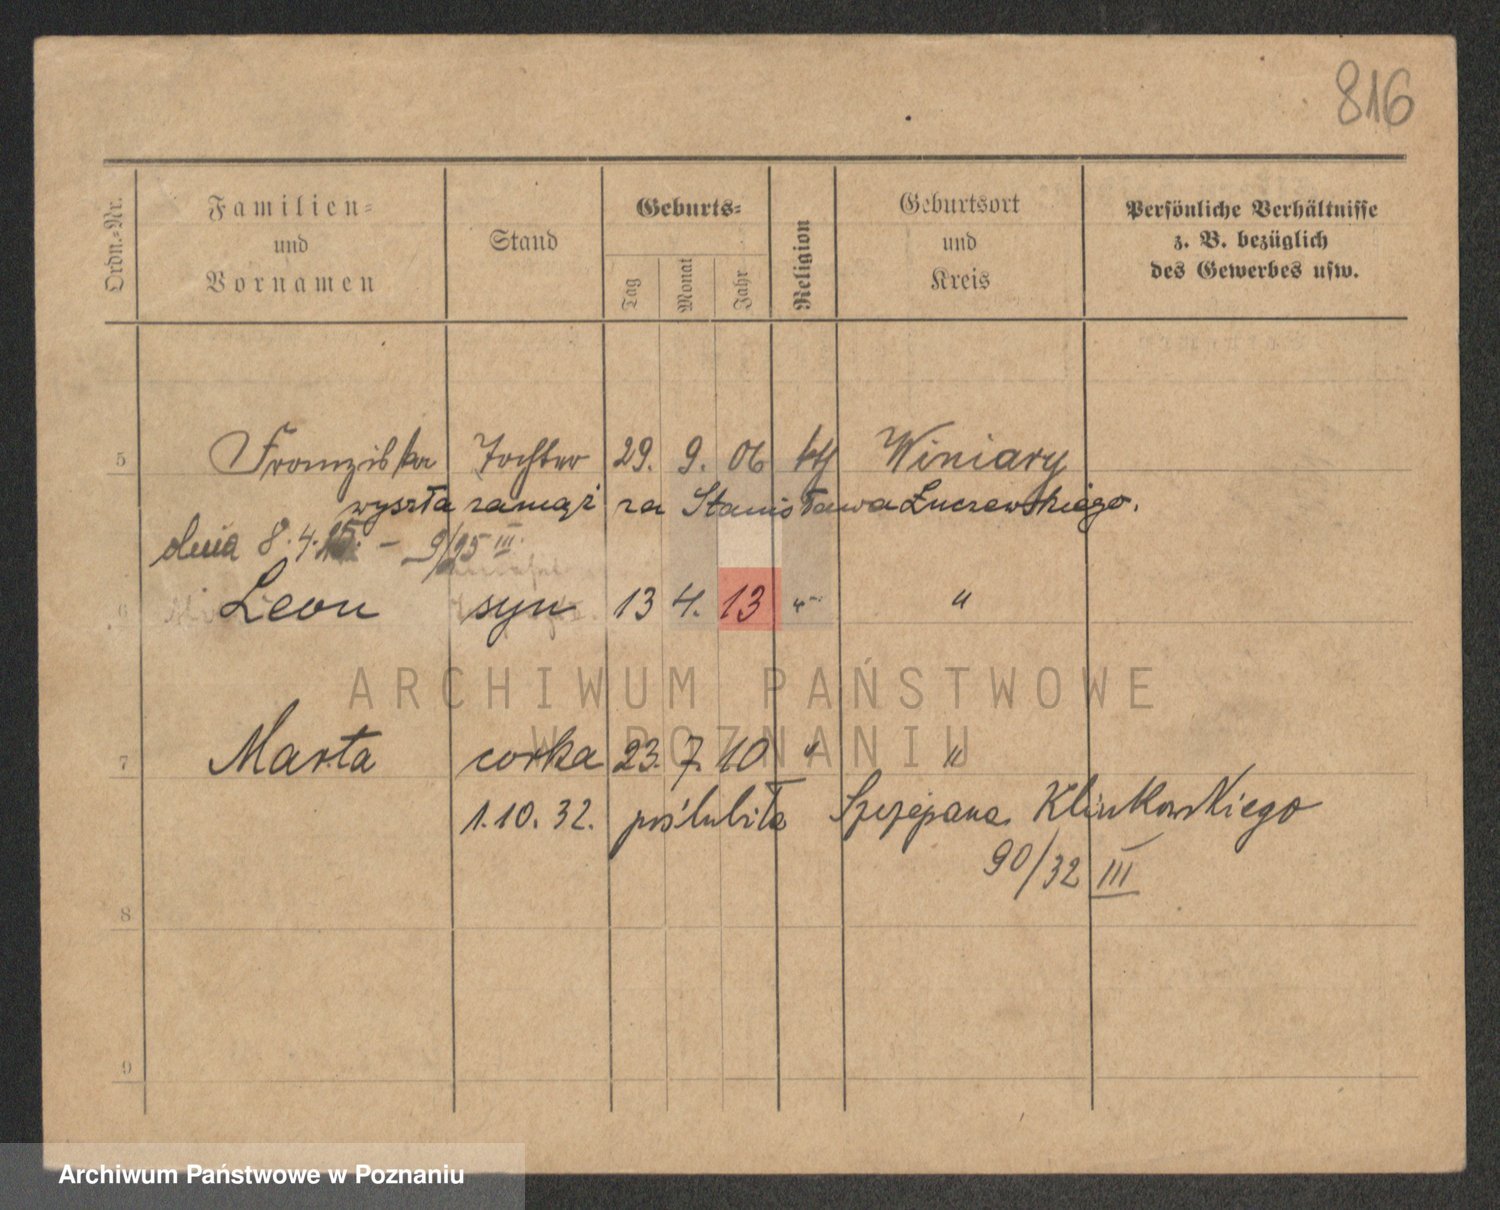 816
Ordn.-Nr.
Familien-
und
Vornamen
Stand
Geburts-
Tag
Monat
Jahr
Religion
Geburtsort
und
Kreis
Persönliche Verhältnisse
z. B. bezüglich
des Gewerbes usw.
5 Franziska Tochter 29. 9. 06 kth Winiary
wyszła zamąż za Stanisława Łuczewskiego.
dnia 8.4.25. – 9/25 III.
6 Leon syn 13 4. 13 " "
ARCHIWUM PAŃSTWOWE
W POZNANIU
7 Marta corka 23. 7. 10 " "
1.10.32. poślubiła Szczepana Klinkowskiego
90/32 III
8
9
Archiwum Państwowe w Poznaniu